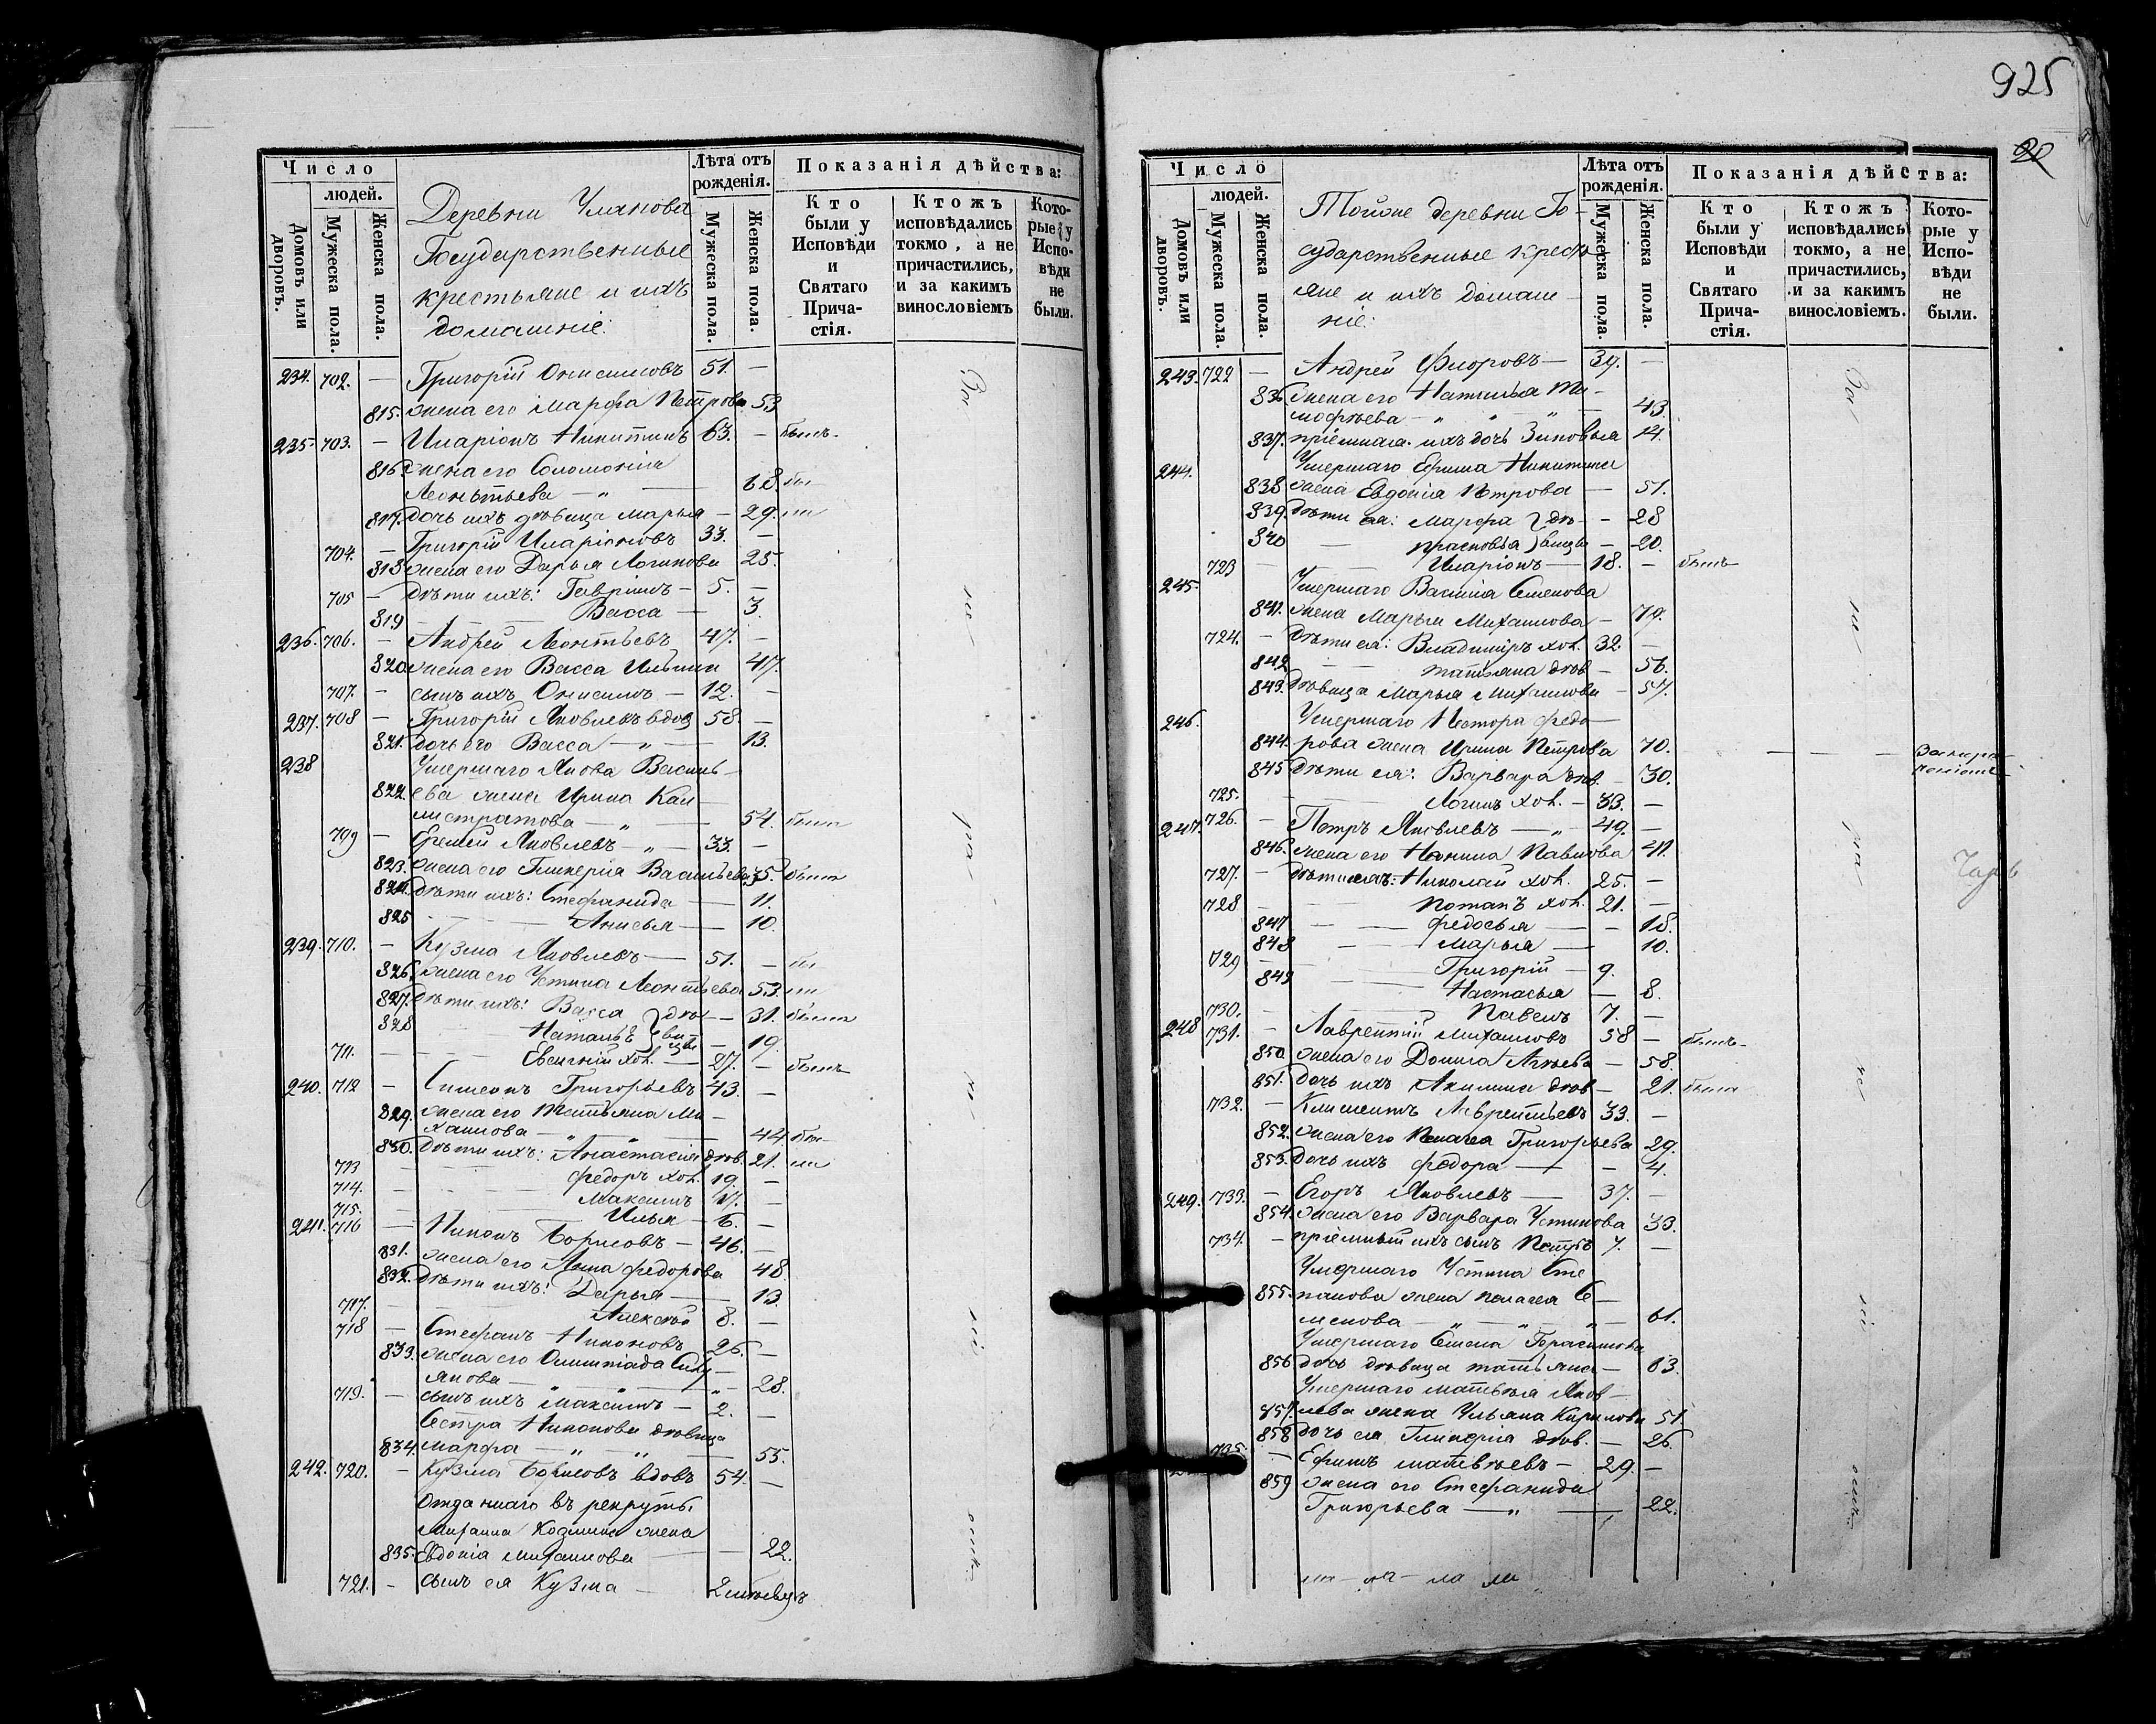 925
20
Число
людей.
Домовъ или дворовъ.
Мужеска пола.
Женска пола.
Деревни Улянова
Государственные
крестьяне и ихъ
домашніе:
Лѣта отъ рожденія.
Мужеска пола.
Женска пола.
Показанія дѣйства:
Кто были у Исповѣди и Святаго Причастія.
Ктожъ исповѣдались токмо, а не причастились, и за какимъ винословіемъ
Которые у Исповѣди не были.
234. 702. — Григорій Онисимовъ 51. —
815. жена его Марфа Петрова 53
235. 703. — Иларіонъ Никитинъ 63. — былъ
816 жена его Соломонія
Леонтьева — „ — 68.
817. дочь ихъ дѣвица Марья — 29.
704. — Григорій Иларіоновъ 33. —
818 жена его Дарья Логинова 25.
705 — дѣти ихъ: Гавріилъ — 5. —
819 Васса — 3.
236. 706. — Андрей Леонтьевъ 47. —
820 жена его Васса Ильина 47.
707. — сынъ ихъ Онисимъ — 12. —
237. 708 — Григорій Яковлевъ вдов 58. —
821. дочь его Васса — „ — 13.
238 Умершаго Якова Василь-
822. ева жена Ирина Кал-
листратова — „ — 54. была
709 — Еремей Яковлевъ — „ — 33. —
823. жена его Гликерія Васильева 35. была
824. дѣти ихъ: Стефанида — 11.
825 Анисья — 10.
239. 710. — Кузма Яковлевъ — 51. —
826. жена его Устина Леонтьева 53.
827. дѣти ихъ: Васса } дѣ- — 31. была
828 Наталья } вицы — 19.
711. — Евгеній хол. — 27. — былъ
240. 712 — Симеонъ Григорьевъ 43. —
829. жена его Татьяна Ми-
хаилова — „ — 44.
830. дѣти ихъ: Анастасія дѣв. 21.
713 Федоръ хол. 19. —
714. Максимъ 17. —
715. — Илья — 6. —
241. 716 — Никонъ Борисовъ — 46. —
831. жена его Анна Федорова 48.
832. дѣти ихъ: Дарья — 13.
717. Алексѣй 8. —
718 — Стефанъ Никоновъ 26. —
833. жена его Олимпіада Силу-
янова — „ — 28.
719. — сынъ ихъ Максимъ — 2. —
Сестра Никонова дѣвица
834. Марфа — „ — „ — 55.
242. 720. — Кузма Борисовъ вдовъ 54. —
Отданнаго въ рекруты
Михаила Козмина жена
835. Евдокія Михаилова — 22.
721. — сынъ ея Кузма — 2
Во
Число
людей.
Домовъ или дворовъ.
Мужеска пола.
Женска пола.
Тойже деревни Го-
сударственные кресть-
яне и ихъ домаш-
ніе:
Лѣта отъ рожденія.
Мужеска пола.
Женска пола.
Показанія дѣйства:
Кто были у Исповѣди и Святаго Причастія.
Ктожъ исповѣдались токмо, а не причастились, и за какимъ винословіемъ.
Которые у Исповѣди не были.
243. 722 — Андрей Флоровъ — 39. —
836 жена его Наталья Ти-
мофѣева — „ „ „ — 43.
837. пріемная ихъ дочь Зиновья 14.
244. Умершаго Ефима Никитина
838 жена Евдокія Петрова — 51.
839. дѣти ея: Марфа } дѣ- — 28
840 — Прасковья } вицы — 20.
723 — Иларіонъ — 18. — былъ
245. Умершаго Василія Семенова
841. жена Марья Михаилова — 79.
724. — дѣти ея: Владиміръ хол. 32. —
842 Татьяна дѣв — 56.
843. дѣвица Марья Михаилова — 57.
246. Умершаго Нестора Федо-
844. рова жена Ирина Петрова 70.
845 дѣти ея: Варвара дѣв. — 30.
725. Логинъ хол. — 33. —
247. 726. — Петръ Яковлевъ — „ — 49. —
846. жена его Нонила Павлова 41.
727. — дѣти ихъ: Николай хол. 25. —
728 — Потапъ хол. 21. —
847 — Федосья — — 18.
848 — Марья — 10.
729 Григорій — 9.
849 Настасья — 8.
730. Павелъ 7. —
248 731. — Лаврентій Михаиловъ 58 — былъ
850. жена его Домна Агѣева — 58.
851. дочь ихъ Акилина дѣв — 21. была
732. — Климентъ Лаврентьевъ 33. —
852. жена его Пелагея Григорьева 29.
853. дочь ихъ Федора — — 4.
249. 733. — Егоръ Яковлевъ — 37. —
854. жена его Варвара Устинова 33.
734. — пріемный ихъ сынъ Петръ 7. —
Умершаго Устина Сте-
855. панова жена Пелагея Се-
менова — „ „ „ — 61.
Умершаго Семена Герасимова
856 дочь дѣвица Татьяна — 63.
Умершаго Матвѣя Яков-
857. лева жена Ульяна Кирилова 51.
858 дочь ея Гликерія дѣв. — 26.
735. — Ефимъ Матвѣевъ — 29. —
859 жена его Стефанида
Григорьева — „ — 22.
Во